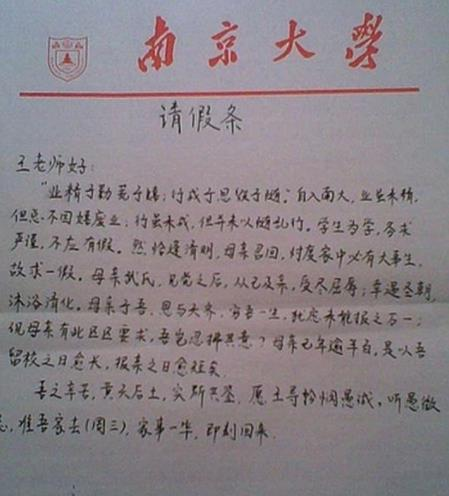 南京大学
请假条
王老师好：
“业精于勤荒于嬉；行成于思毁于随。”自入南大，业虽未精，
但总不因嬉废业；行虽未成，但早未以随乱行。学生为学，务求
严谨，不应有假。然恰逢清明，母亲召回，忖度家中必有大事生，
故求一假。母亲 氏，见 之后，从己及亲，受尽屈辱；幸遇圣朝，
沐浴清化。母亲于吾，恩与天齐，穷吾一生， 定未能报之万一；
但母亲有此区区要求，吾岂忍拂其意？母亲已年逾半百，是以吾
留校之日愈长，报亲之日愈短矣。
吾之辛苦，黄天后土，实所共鉴，愿王导矜悯愚诚，听愚微
志，准吾家去（周三），家事一毕，即刻回来。